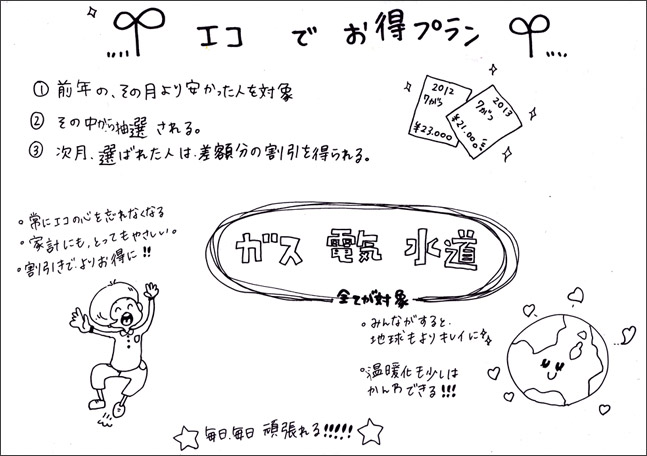 エコ でお得プラン
① 前年の、その月より安かった人を対象
② その中から抽選される。
③ 次月、選ばれた人は、差額分の割引を得られる。
2012
7がつ
¥23,000
2013
7がつ
¥21,000
。常にエコの心を忘れなくなる
。家計にも、とってもやさしい。
。割引きでよりお得に!!
ガス 電気 水道
全てが対象
。みんながすると、
地球もよりキレイに
。温暖化も少しは
かんわできる!!!
☆ 毎日、毎日 頑張れる!!!!! ☆